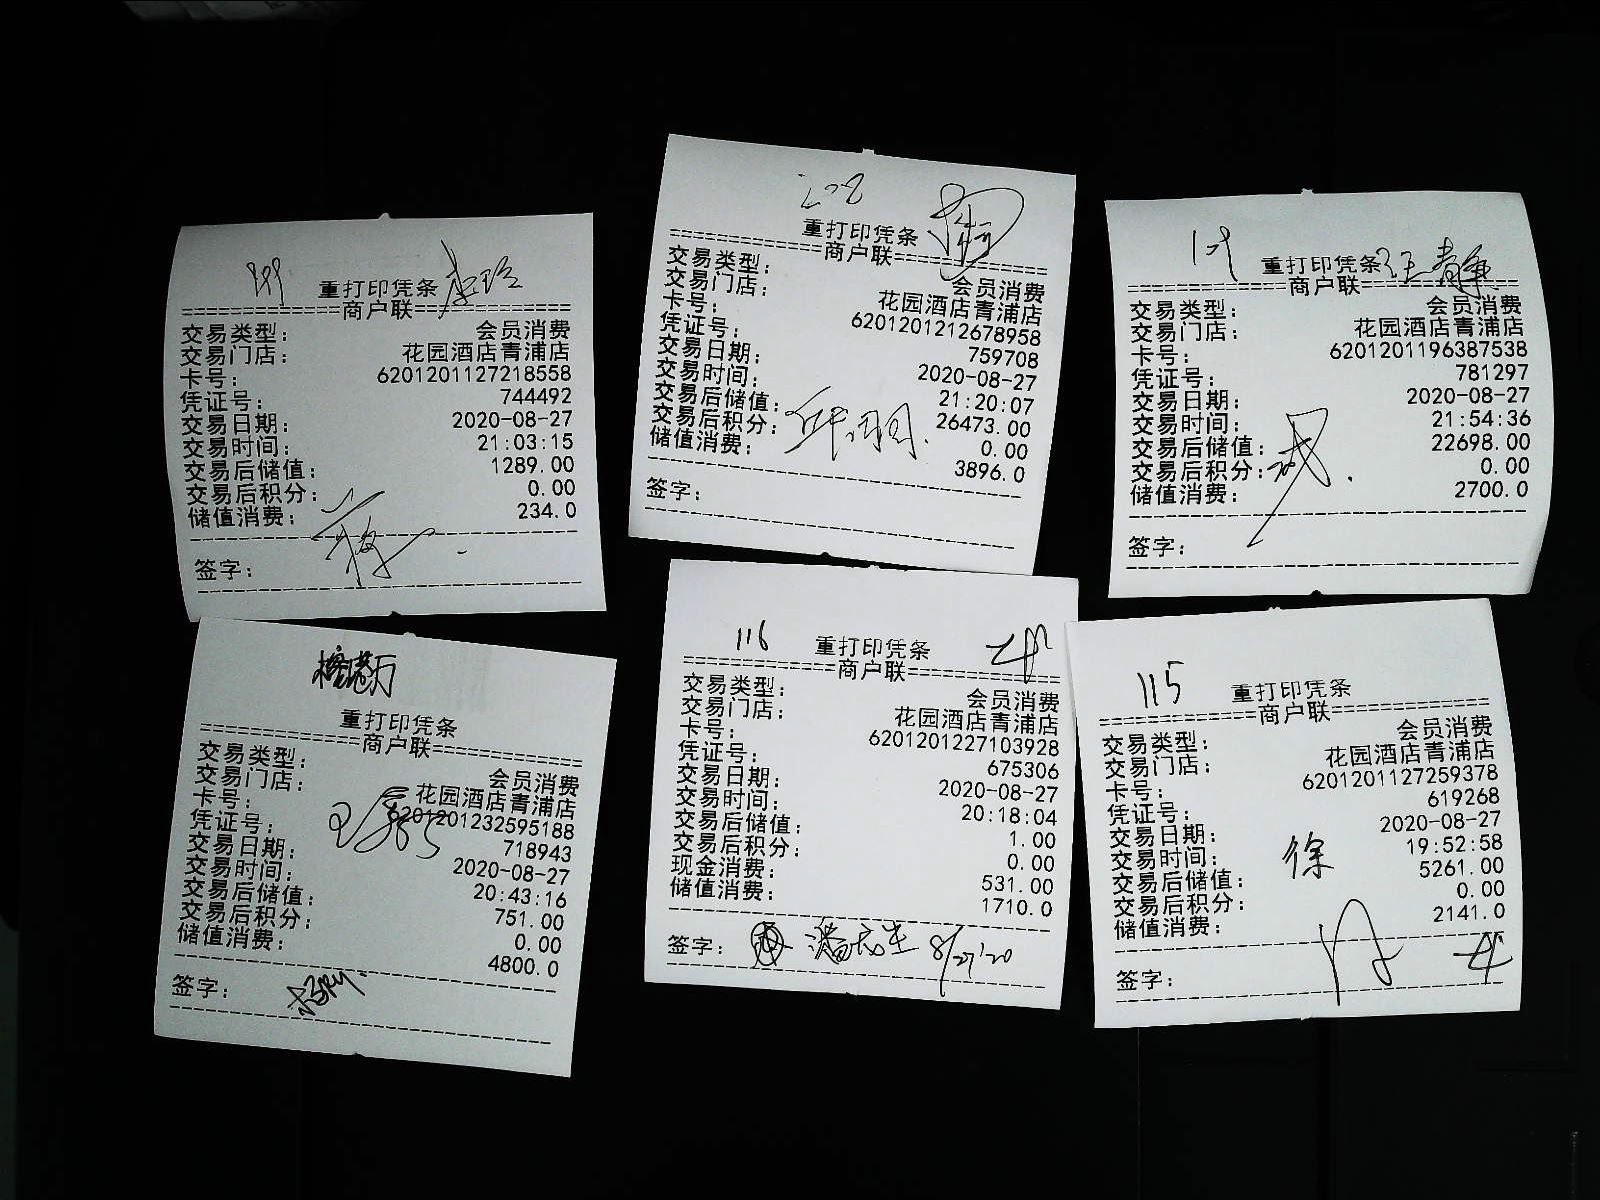 重打印凭条
==============商户联==============
交易类型: 会员消费
交易门店: 花园酒店青浦店
卡号: 6201201127218558
凭证号: 744492
交易日期: 2020-08-27
交易时间: 21:03:15
交易后储值: 1289.00
交易后积分: 0.00
储值消费: 234.0
签字:
重打印凭条
==============商户联==============
交易类型: 会员消费
交易门店: 花园酒店青浦店
卡号: 6201201212678958
凭证号: 759708
交易日期: 2020-08-27
交易时间: 21:20:07
交易后储值: 26473.00
交易后积分: 0.00
储值消费: 3896.0
签字:
重打印凭条
==============商户联==============
交易类型: 会员消费
交易门店: 花园酒店青浦店
卡号: 6201201196387538
凭证号: 781297
交易日期: 2020-08-27
交易时间: 21:54:36
交易后储值: 22698.00
交易后积分: 0.00
储值消费: 2700.0
签字:
重打印凭条
==============商户联==============
交易类型: 会员消费
交易门店: 花园酒店青浦店
卡号: 6201201232595188
凭证号: 718943
交易日期: 2020-08-27
交易时间: 20:43:16
交易后储值: 751.00
交易后积分: 0.00
储值消费: 4800.0
签字:
116 重打印凭条
==============商户联==============
交易类型: 会员消费
交易门店: 花园酒店青浦店
卡号: 6201201227103928
凭证号: 675306
交易日期: 2020-08-27
交易时间: 20:18:04
交易后储值: 1.00
交易后积分: 0.00
现金消费: 531.00
储值消费: 1710.0
签字: 8/27'20
115 重打印凭条
==============商户联==============
交易类型: 会员消费
交易门店: 花园酒店青浦店
卡号: 6201201127259378
凭证号: 619268
交易日期: 2020-08-27
交易时间: 19:52:58
徐
交易后储值: 5261.00
交易后积分: 0.00
储值消费: 2141.0
签字: